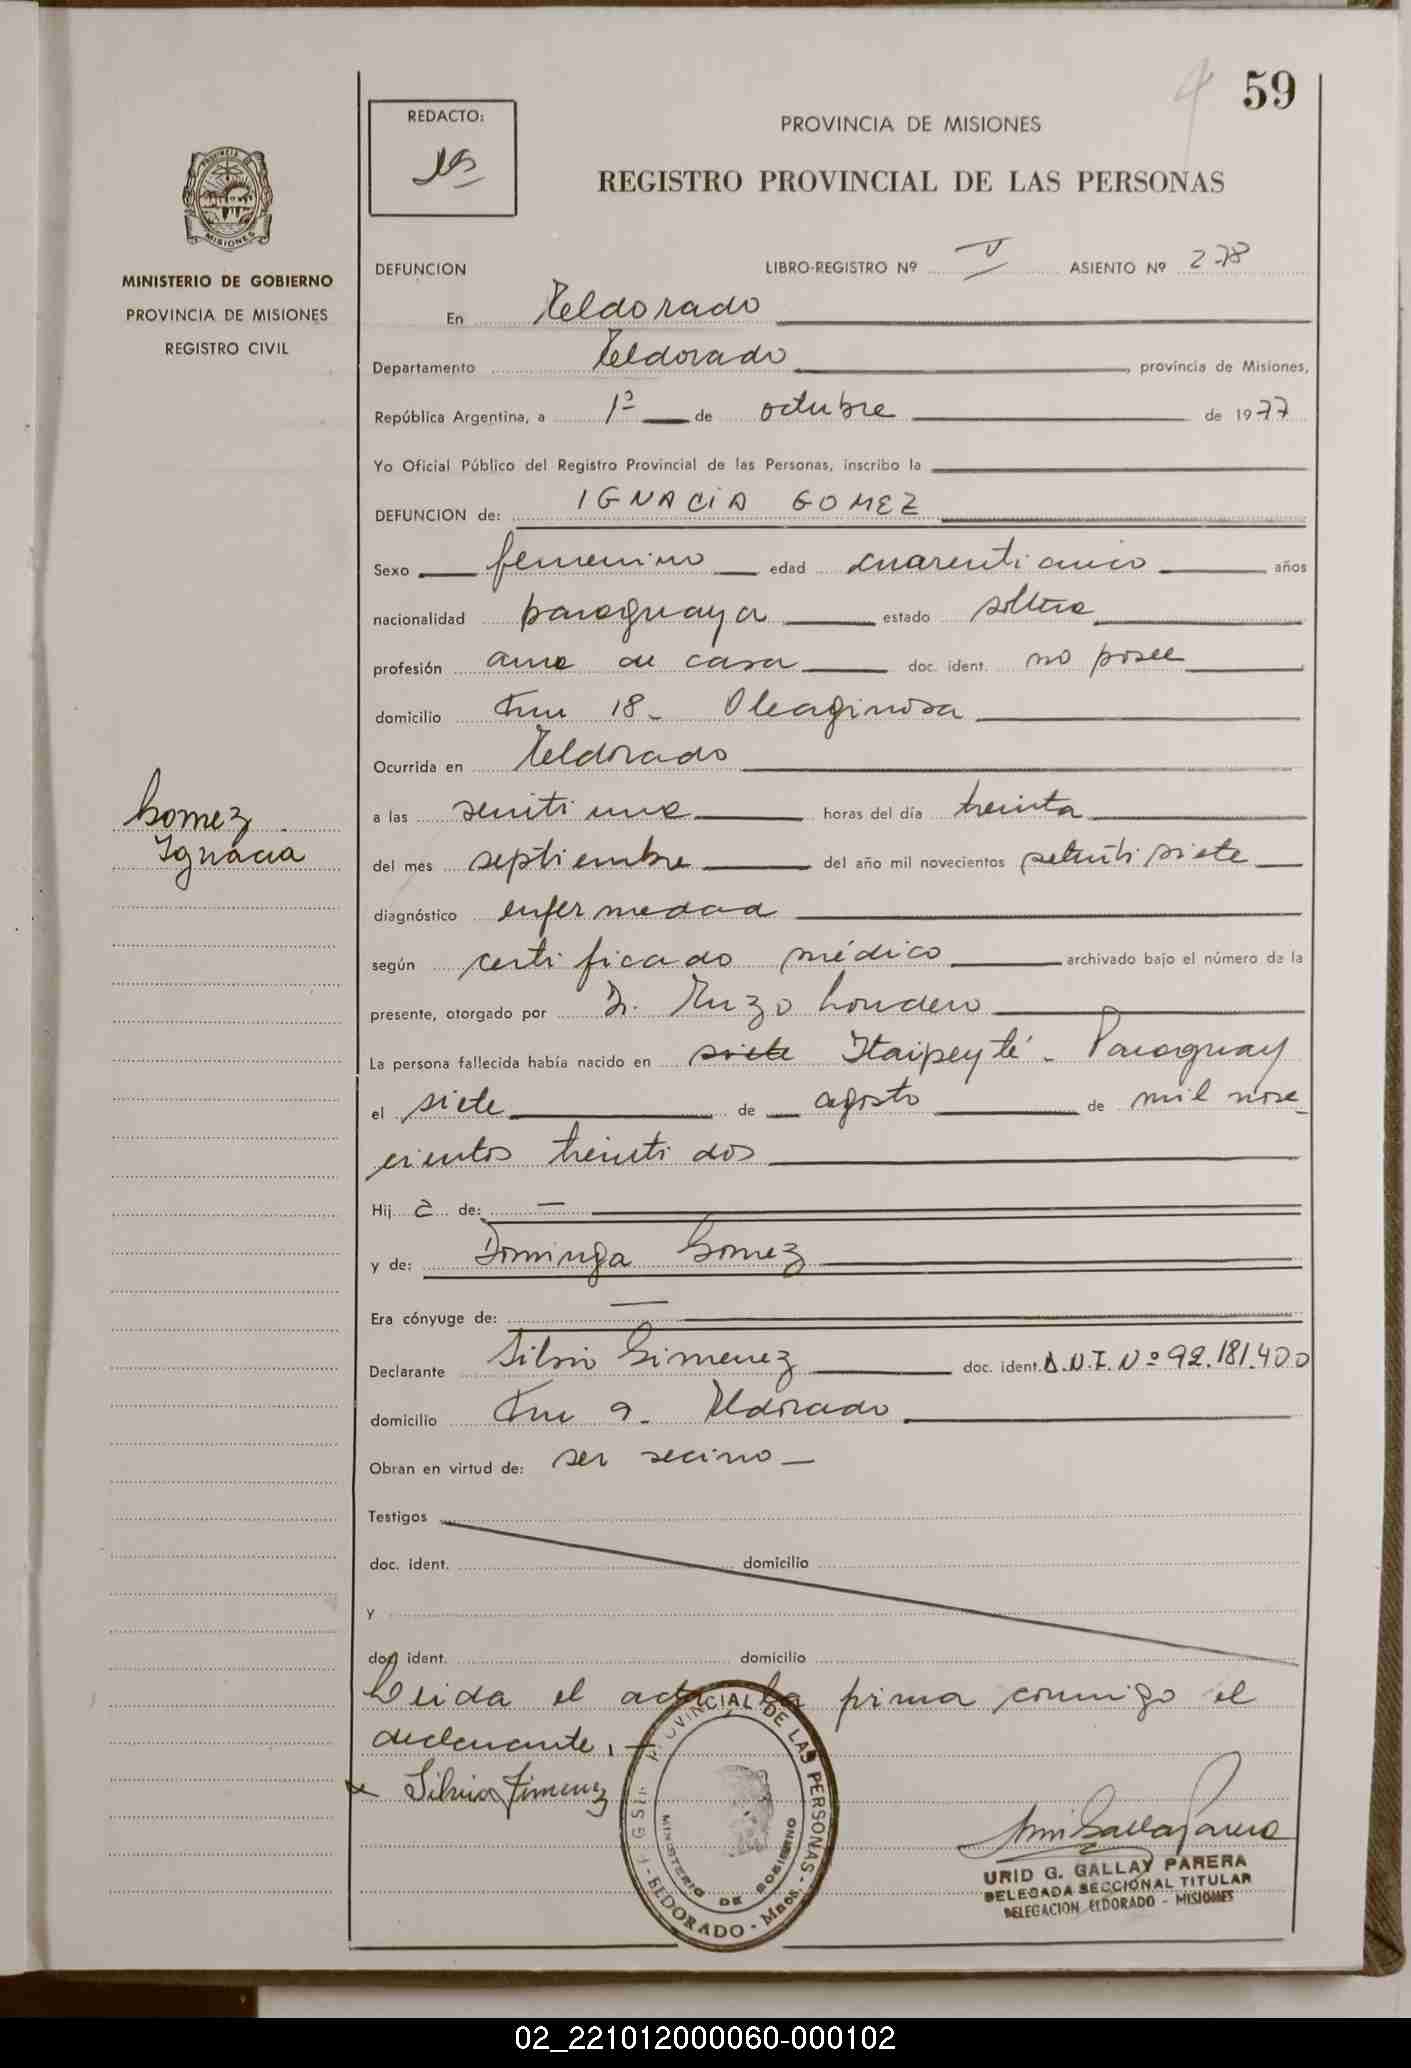 59
REDACTO:
PROVINCIA DE MISIONES
REGISTRO PROVINCIAL DE LAS PERSONAS
MISIONES
MINISTERIO DE GOBIERNO
PROVINCIA DE MISIONES
REGISTRO CIVIL
DEFUNCION LIBRO-REGISTRO Nº V ASIENTO Nº 278
En Eldorado
Departamento Eldorado, provincia de Misiones,
República Argentina, a 1º de octubre de 1977
Yo Oficial Público del Registro Provincial de las Personas, inscribo la
DEFUNCION de: IGNACIA GOMEZ
Sexo femenino edad cuarenticinco años
nacionalidad paraguaya estado soltera
profesión ama de casa doc. ident. no posee
domicilio Km 18- Oleaginosa
Ocurrida en Eldorado
Gomez
Ignacia
a las veintiuna horas del día treinta
del mes septiembre del año mil novecientos setentisiete
diagnóstico enfermedad
según certificado médico archivado bajo el número de la
presente, otorgado por Dr. Enzo Londero
La persona fallecida había nacido en siete Itaipeyté - Paraguay
el siete de agosto de mil nove-
cientos treintidos
Hija de: —
y de: Dominga Gomez
Era cónyuge de: —
Declarante Silvio Gimenez doc. ident. D.N.I. Nº 92.181.400
domicilio Km 9- Eldorado
Obran en virtud de: ser vecino —
Testigos
doc. ident. domicilio
y
doc. ident. domicilio
Leida el acta, la firma conmigo el
declarante. —
x Silvio Jimenez
PROVINCIAL DE LAS PERSONAS - ELDORADO - Mnes.
MINISTERIO DE GOBIERNO
URID G. GALLAY PARERA
DELEGADA SECCIONAL TITULAR
DELEGACION ELDORADO - MISIONES
02_221012000060-000102